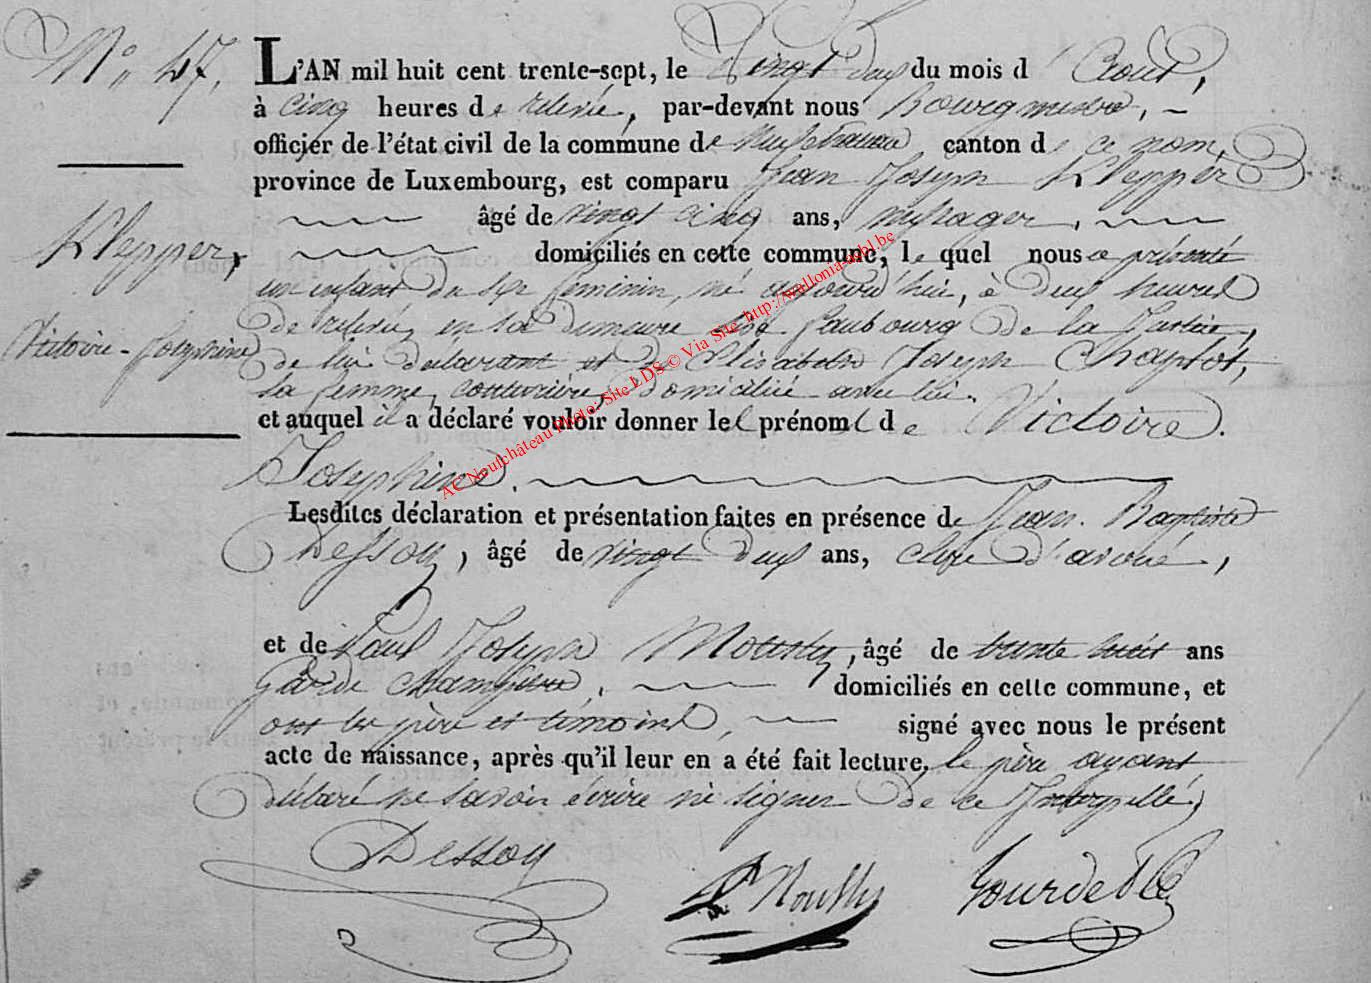 N° 47,
L'AN mil huit cent trente-sept, le Vingt deux du mois d'Août,
à cinq heures de relevée, par-devant nous Bourgmestre,
officier de l'état civil de la commune de Neufchateau canton de ce nom,
province de Luxembourg, est comparu Jean Joseph Klepper
âgé de vingt cinq ans, messager,
Klepper,
domiciliés en cette commune, le quel nous a présenté
un enfant du sexe feminin, né aujourd'hui, à deux heures
de relevée, en sa demeure faubourg de la
Victoire-Josephine
de lui déclarant et de Elisabeth Joseph Chaplot,
sa femme, couturière, domiciliée avec lui.
et auquel il a déclaré vouloir donner les prénoms de Victoire.
Josephine.
Lesdites déclaration et présentation faites en présence de Jean Baptiste
Dessoy, âgé de vingt deux ans, clerc d'avoué,
et de Paul Joseph Mousty, âgé de trente huit ans
Garde Champêtre, domiciliés en cette commune, et
ont les père et témoins, signé avec nous le présent
acte de naissance, après qu'il leur en a été fait lecture, le père ayant
déclaré ne savoir écrire ni signer de ce Interpellé,
Dessoy
Mousty
AC Neufchâteau Photo: Site LDS © Via Site http://wallonia-asbl.be